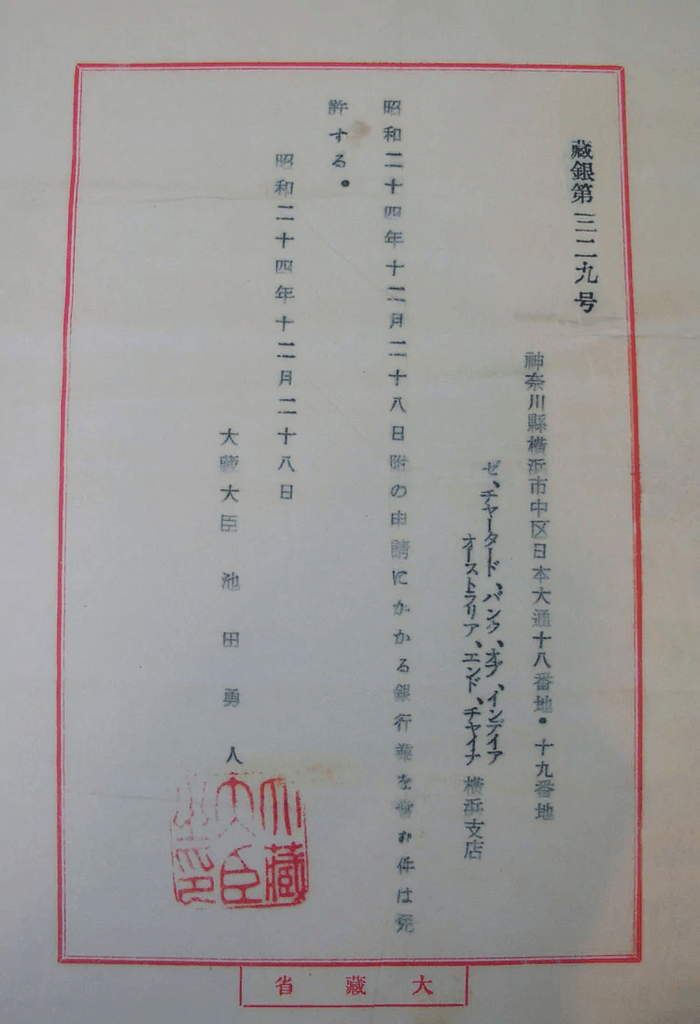 藏銀第三二九号
神奈川縣横浜市中区日本大通十八番地・十九番地
ゼ、チャータード、バンク、オブ、インデイア
オーストラリア、エンド、チャイナ 横浜支店
昭和二十四年十二月二十八日附の申請にかかる銀行業を営む件は免
許する。
昭和二十四年十二月二十八日
大藏大臣 池田勇人
大藏大臣之印
大藏省